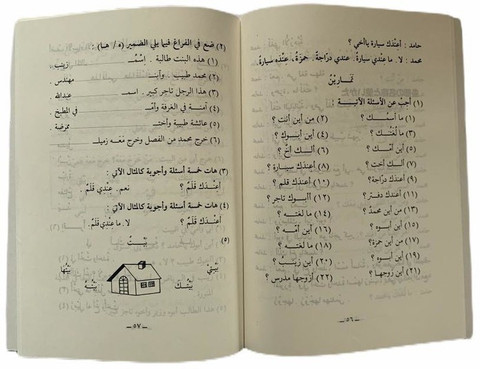 حامد : أعِنْدك سيارة يا أخي ؟
محمد : لا . ما عندي سيارة . عندي درّاجةٌ . حمزةُ، عنده سيارةٌ .
تمارين
(١) أجبْ عن الأسئلة الآتية :
(١) ما اسمُك ؟ (٢) مِن أين أنت ؟
(٣) ما لُغتك ؟ (٤) أين أبوك ؟
(٥) ألك أخٌ ؟
(٧) ألك أخت ؟ (٨) أعندك سيارة ؟
(٩) أعندك درّاجة ؟ (١٠) أعندك قلم ؟
(١١) أعندك دفتر ؟ (١٢) أأبوك تاجر ؟
(١٣) من أين محمدٌ ؟ (١٤) ما لغته ؟
(١٥) أين أبوه ؟ (١٦) أين أمّه ؟
(١٧) من أين حمزة ؟ (١٨) ما لغته ؟
(١٩) أين أبوه ؟ (٢٠) أين زينبُ ؟
(٢١) أين زوجها ؟ (٢٢) أزوجها مدرس ؟
ــ ٥٦ ــ
(٢) ضع في الفراغ فيما يلي الضمير (ه / ها) :
(١) هذه البنت طالبة . اسمـ زينب
(٢) محمد طبيب . وابنـ مهندس .
(٣) هذا الرجل تاجر كبير . اسمـ عبدالله .
(٤) آمنة في الغرفة وأمّـ في المطبخ
(٥) عائشة طبيبة وأختـ ممرضة
(٦) خرج محمد من الفصل وخرج معه زميلـ
(٣) هات خمسة أسئلة وأجوبة كالمثال الآتي :
أعندك قلمٌ ؟ نعم. عِندي قلمٌ .
(٤) هات خمسة أسئلة وأجوبة كالمثال الآتي :
أعندك قلمٌ ؟ لا. ما عِندي قلمٌ .
(٥) بيتٌ
بيتي بيتها
بيتك بيته
ــ ٥٧ ــ